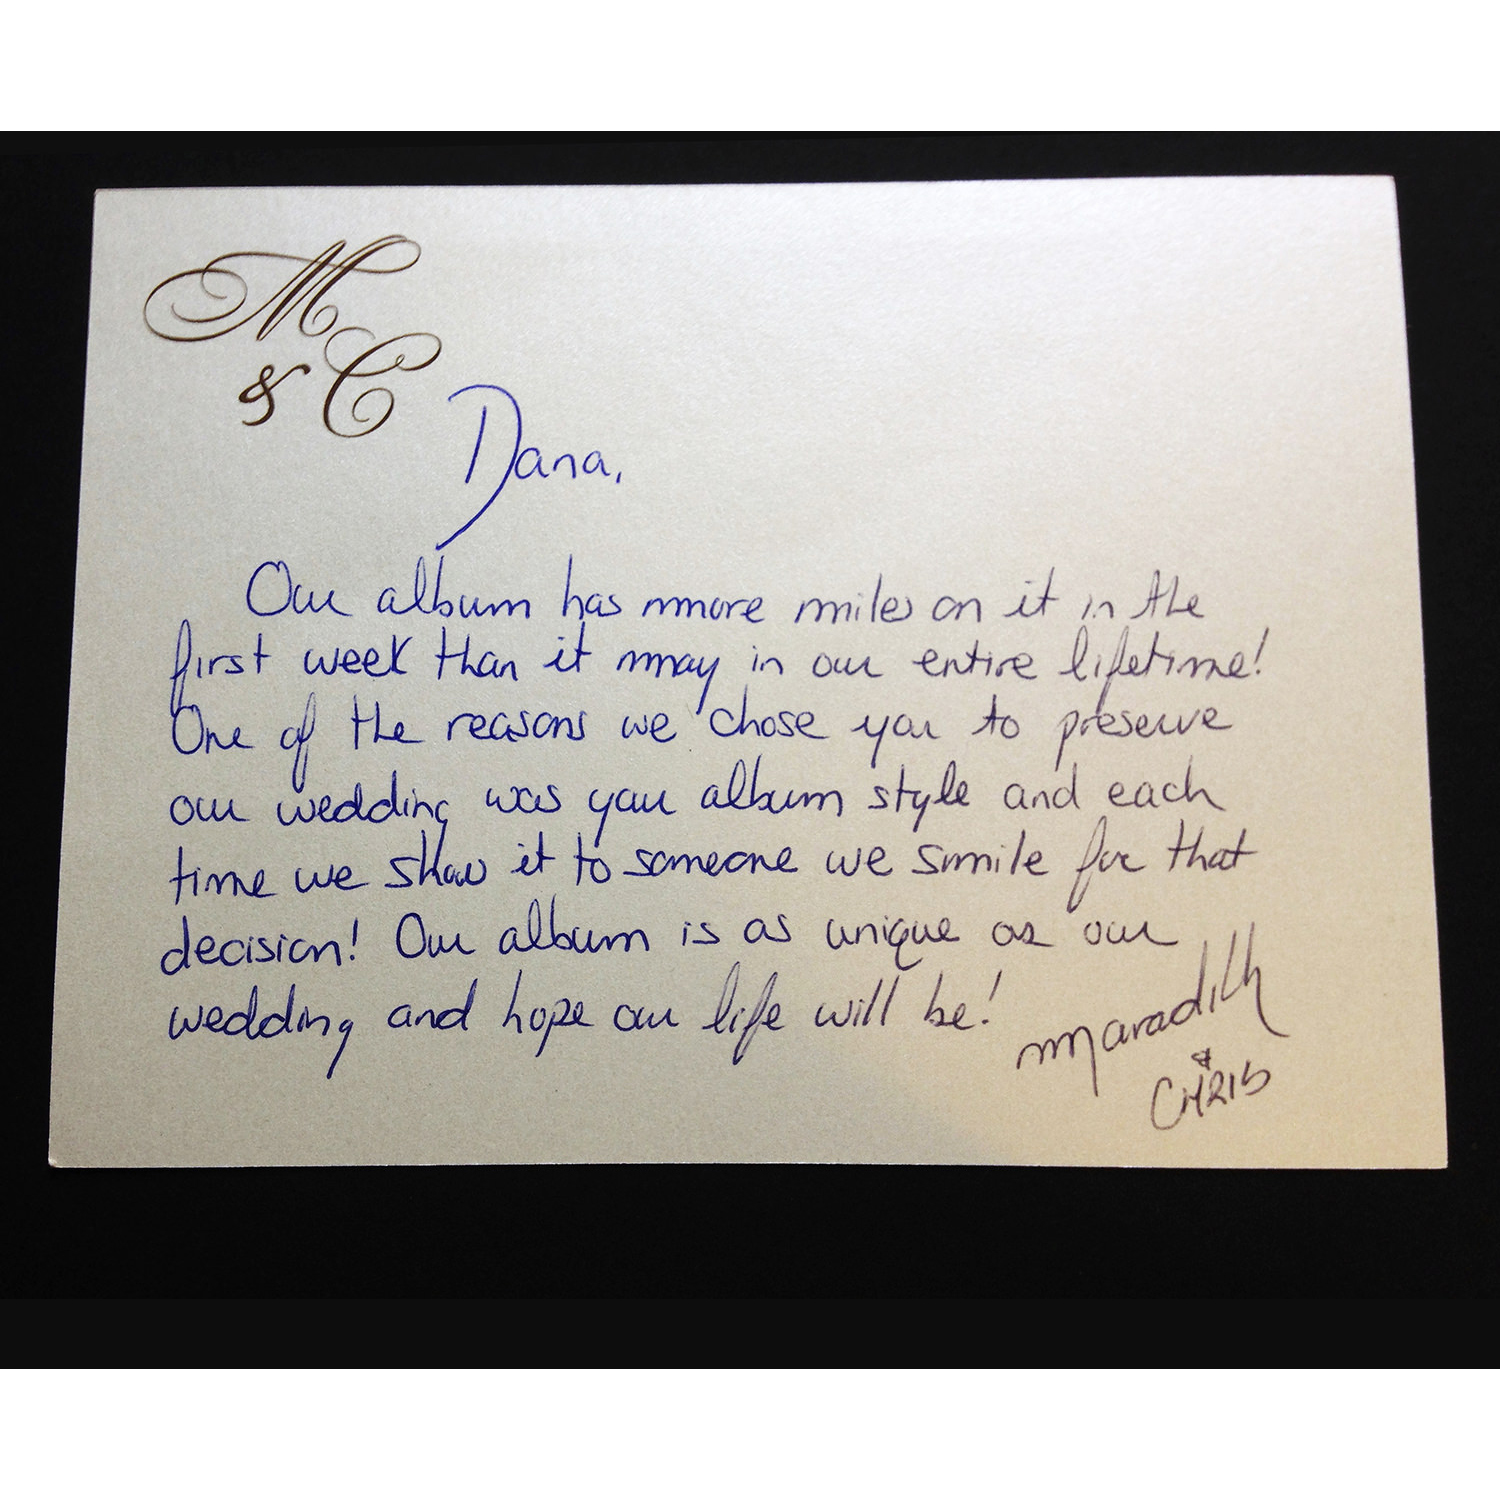 M
& C
Dana,
Our album has more miles on it in the
first week than it may in our entire lifetime!
One of the reasons we chose you to preserve
our wedding was your album style and each
time we show it to someone we smile for that
decision! Our album is as unique as our
wedding and hope our life will be!
Maradith
&
CHRIS